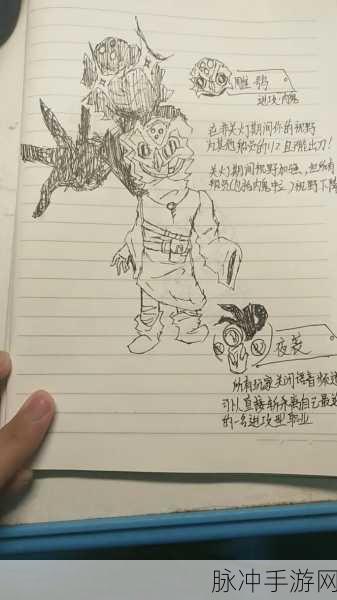 雕鸮
进攻内鬼
在非关灯期间你的视野
为其他船员的1/2且不能出刀!
关灯期间视野加强,但所有
船员(包括内鬼中立)视野下降
夜菱
所有玩家关闭语音频道
可以直接斩杀离自己最近
的一名进攻型职业
脉冲手游网